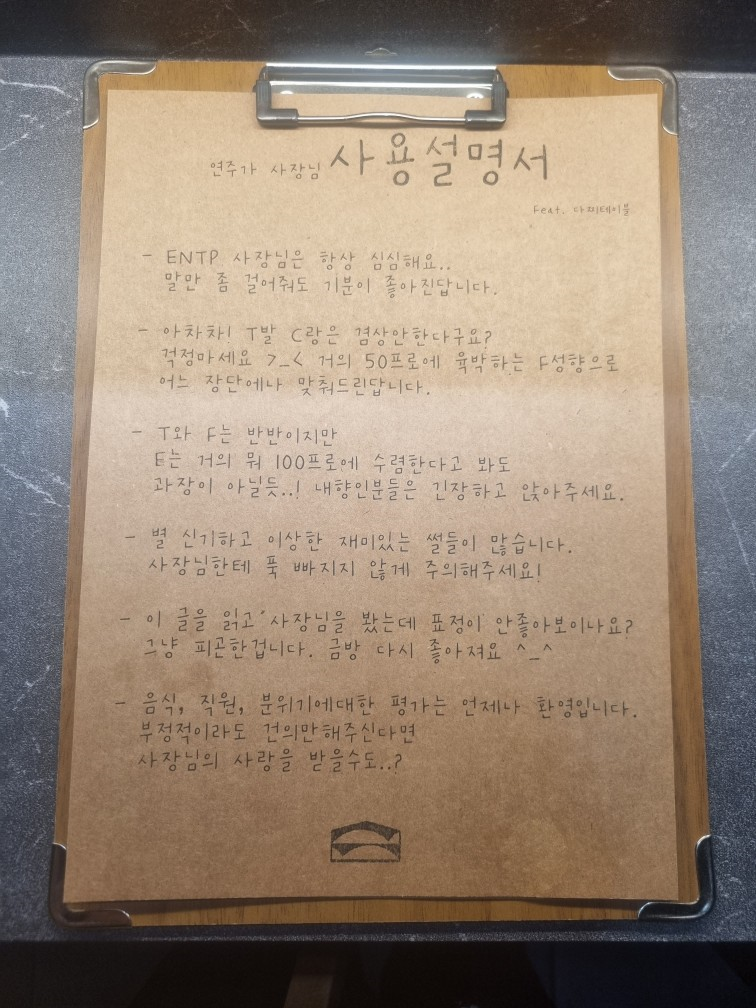 연주가 사장님 사용설명서
Feat. 다찌테이블
- ENTP 사장님은 항상 심심해요..
말만 좀 걸어줘도 기분이 좋아진답니다.
- 아차차! T발 C랑은 겸상안한다구요?
걱정마세요 >_< 거의 50프로에 육박하는 F성향으로
어느 장단에나 맞춰드린답니다.
- T와 F는 반반이지만
E는 거의 뭐 100프로에 수렴한다고 봐도
과장이 아닐듯..! 내향인분들은 긴장하고 앉아주세요.
- 별 신기하고 이상한 재미있는 썰들이 많습니다.
사장님한테 푹 빠지지 않게 주의해주세요!
- 이 글을 읽고 사장님을 봤는데 표정이 안좋아보이나요?
그냥 피곤한겁니다. 금방 다시 좋아져요 ^_^
- 음식, 직원, 분위기에대한 평가는 언제나 환영입니다.
부정적이라도 건의만해주신다면
사장님의 사랑을 받을수도..?